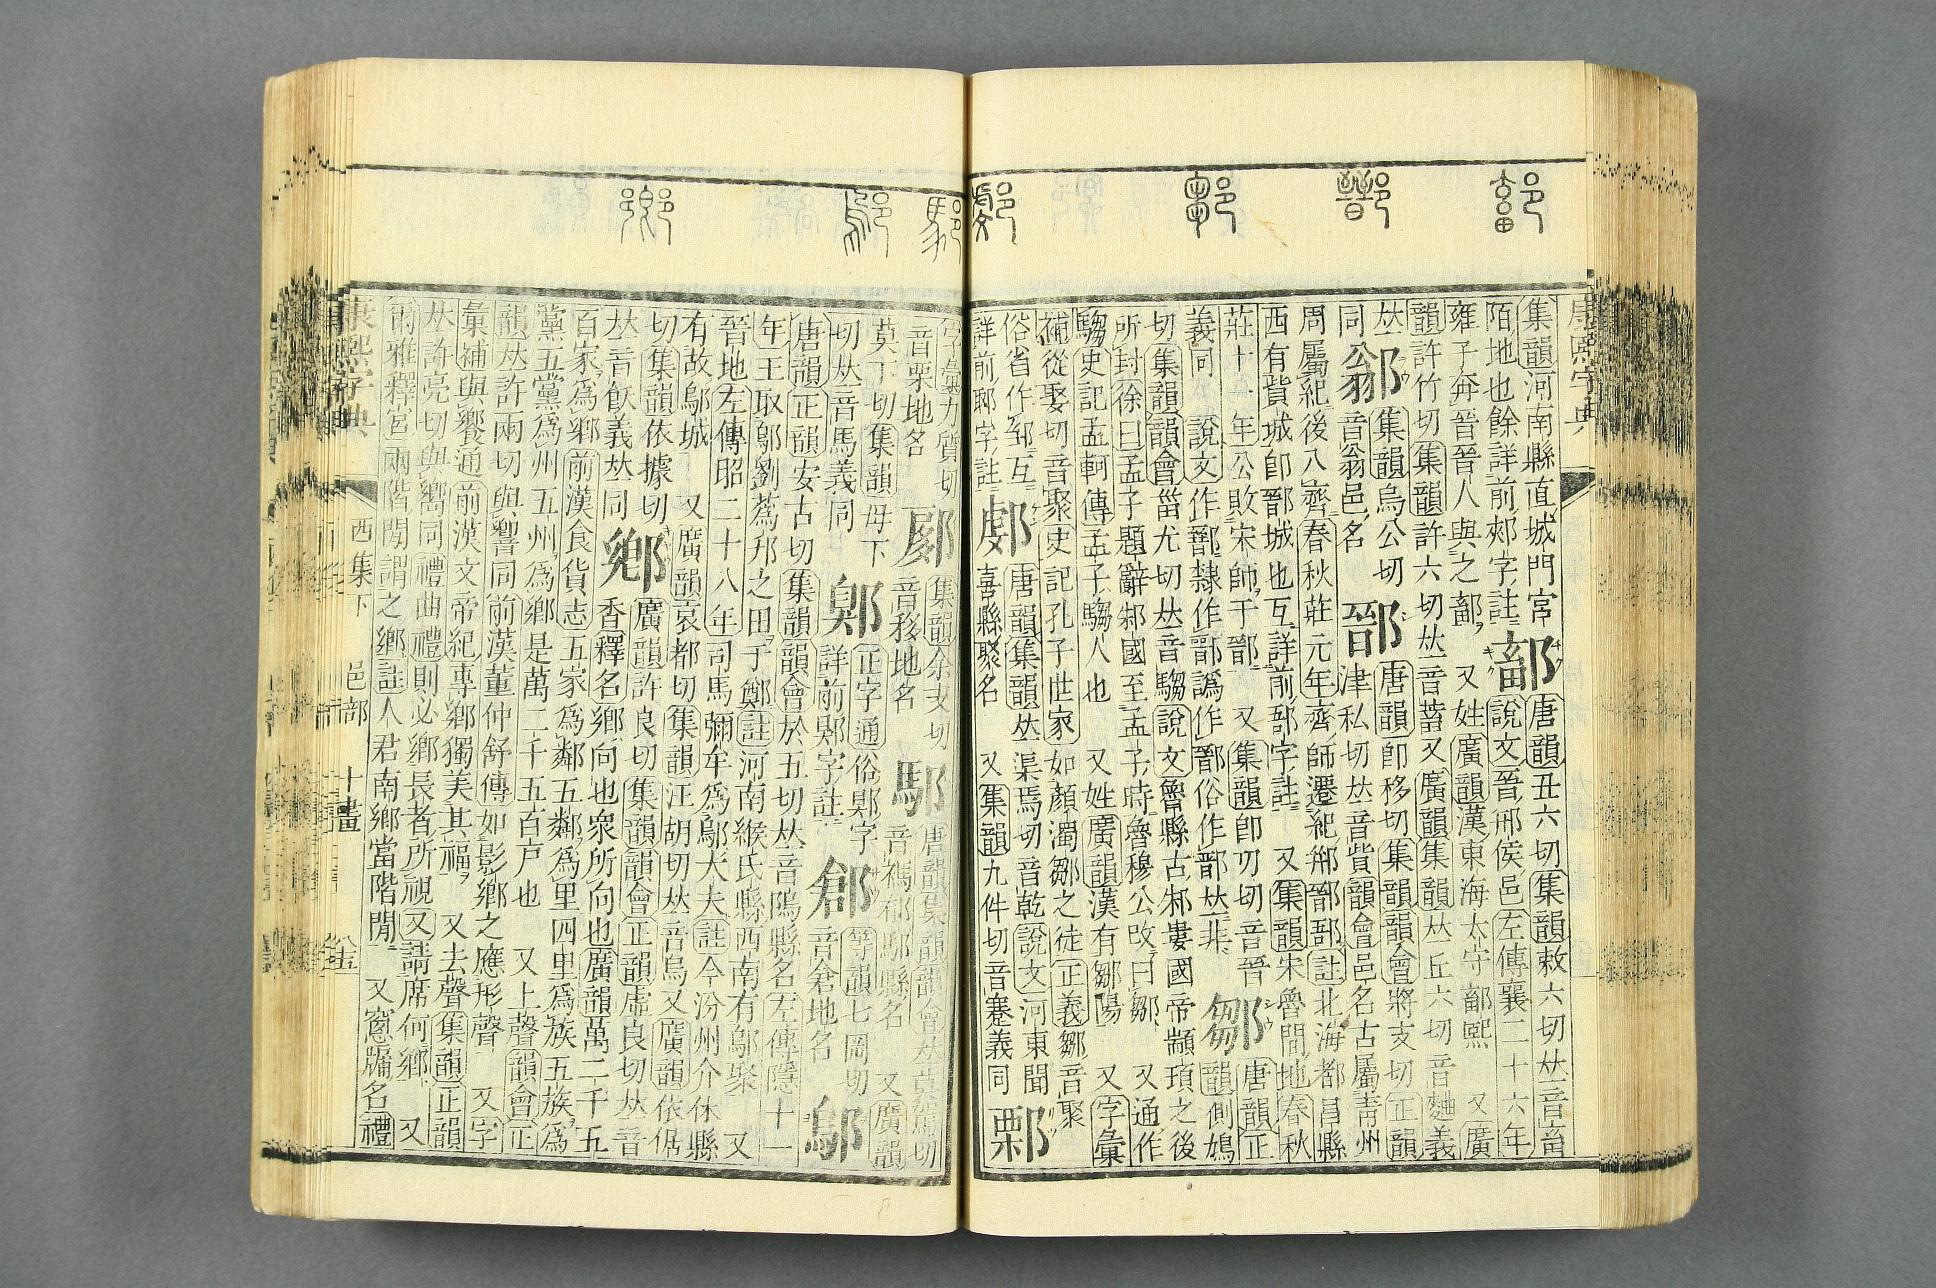 康熙字典
集韻河南縣直城門官
陌地也餘詳前郟字註
鄐
唐韻丑六切集韻敕六切𠀤音畜
說文晉邢侯邑左傳襄二十六年
雍子奔晉晉人與之鄐 又姓廣韻漢東海太守鄐熙 又廣
韻許竹切集韻許六切𠀤音蓄又廣韻集韻𠀤丘六切音麯義
𠀤
同
集韻烏公切
音翁邑名
鄑
唐韻卽移切集韻韻會將支切正韻
津私切𠀤音貲韻會邑名古屬靑州
周屬紀後入齊春秋莊元年齊師遷紀郱鄑郚註北海都昌縣
西有訾城卽鄑城也互詳前郚字註 又集韻宋魯閒地春秋
莊十一年公敗宋師于鄑 又集韻卽刃切音晉
義同 說文作鄑隸作鄑譌作 俗作 𠀤非
鄒
唐韻正
韻側鳩
切集韻韻會甾尤切𠀤音騶說文魯縣古邾婁國帝顓頊之後
所封徐曰孟子題辭邾國至孟子時魯穆公改曰鄒 又通作
騶史記孟軻傳孟子騶人也 又姓廣韻漢有鄒陽 又字彙
補從娶切音聚史記孔子世家如顏濁鄒之徒正義鄒音聚
俗省作邹互
詳前邾字註
唐韻集韻𠀤渠焉切音乾說文河東聞
喜縣聚名 又集韻九件切音蹇義同
字彙力質切
音栗地名
集韻余支切
音移地名
唐韻集韻韻會𠀤莫駕切
音禡郁 縣名 又廣韻
莫下切集韻母下
切𠀤音馬義同
正字通俗 字
詳前 字註
等韻七岡切
音倉地名
鄔
唐韻正韻安古切集韻韻會於五切𠀤音隖縣名左傳隱十一
年王取鄔劉蒍邘之田于鄭註河南緱氏縣西南有鄔聚 又
晉地左傳昭二十八年司馬彌牟爲鄔大夫註今汾州介休縣
有故鄔城 又廣韻哀都切集韻汪胡切𠀤音烏又廣韻依倨
切集韻依據切
𠀤音飫義𠀤同
鄉
廣韻許良切集韻韻會正韻虛良切𠀤音
香釋名鄉向也衆所向也廣韻萬二千五
百家爲鄉前漢食貨志五家爲鄰五鄰爲里四里爲族五族爲
黨五黨爲州五州爲鄉是萬二千五百戶也 又上聲韻會正
韻𠀤許兩切與響同前漢董仲舒傳如影鄉之應形聲 又字
彙補與饗通前漢文帝紀專鄉獨美其福 又去聲集韻正韻
𠀤許亮切與嚮同禮曲禮則必鄉長者所視又請席何鄉 又
爾雅釋宮兩階閒謂之鄉註人君南鄉當階閒 又窻牖名禮
康熙字典 酉集下 邑部 十畫